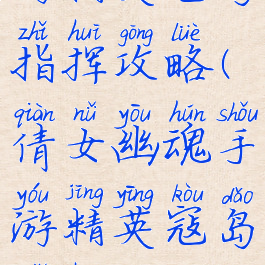 zhǐ huī gōng lüè
指挥攻略(
qiàn nǚ yōu hún shǒu
倩女幽魂手
yóu jīng yīng kòu dǎo
游精英寇岛